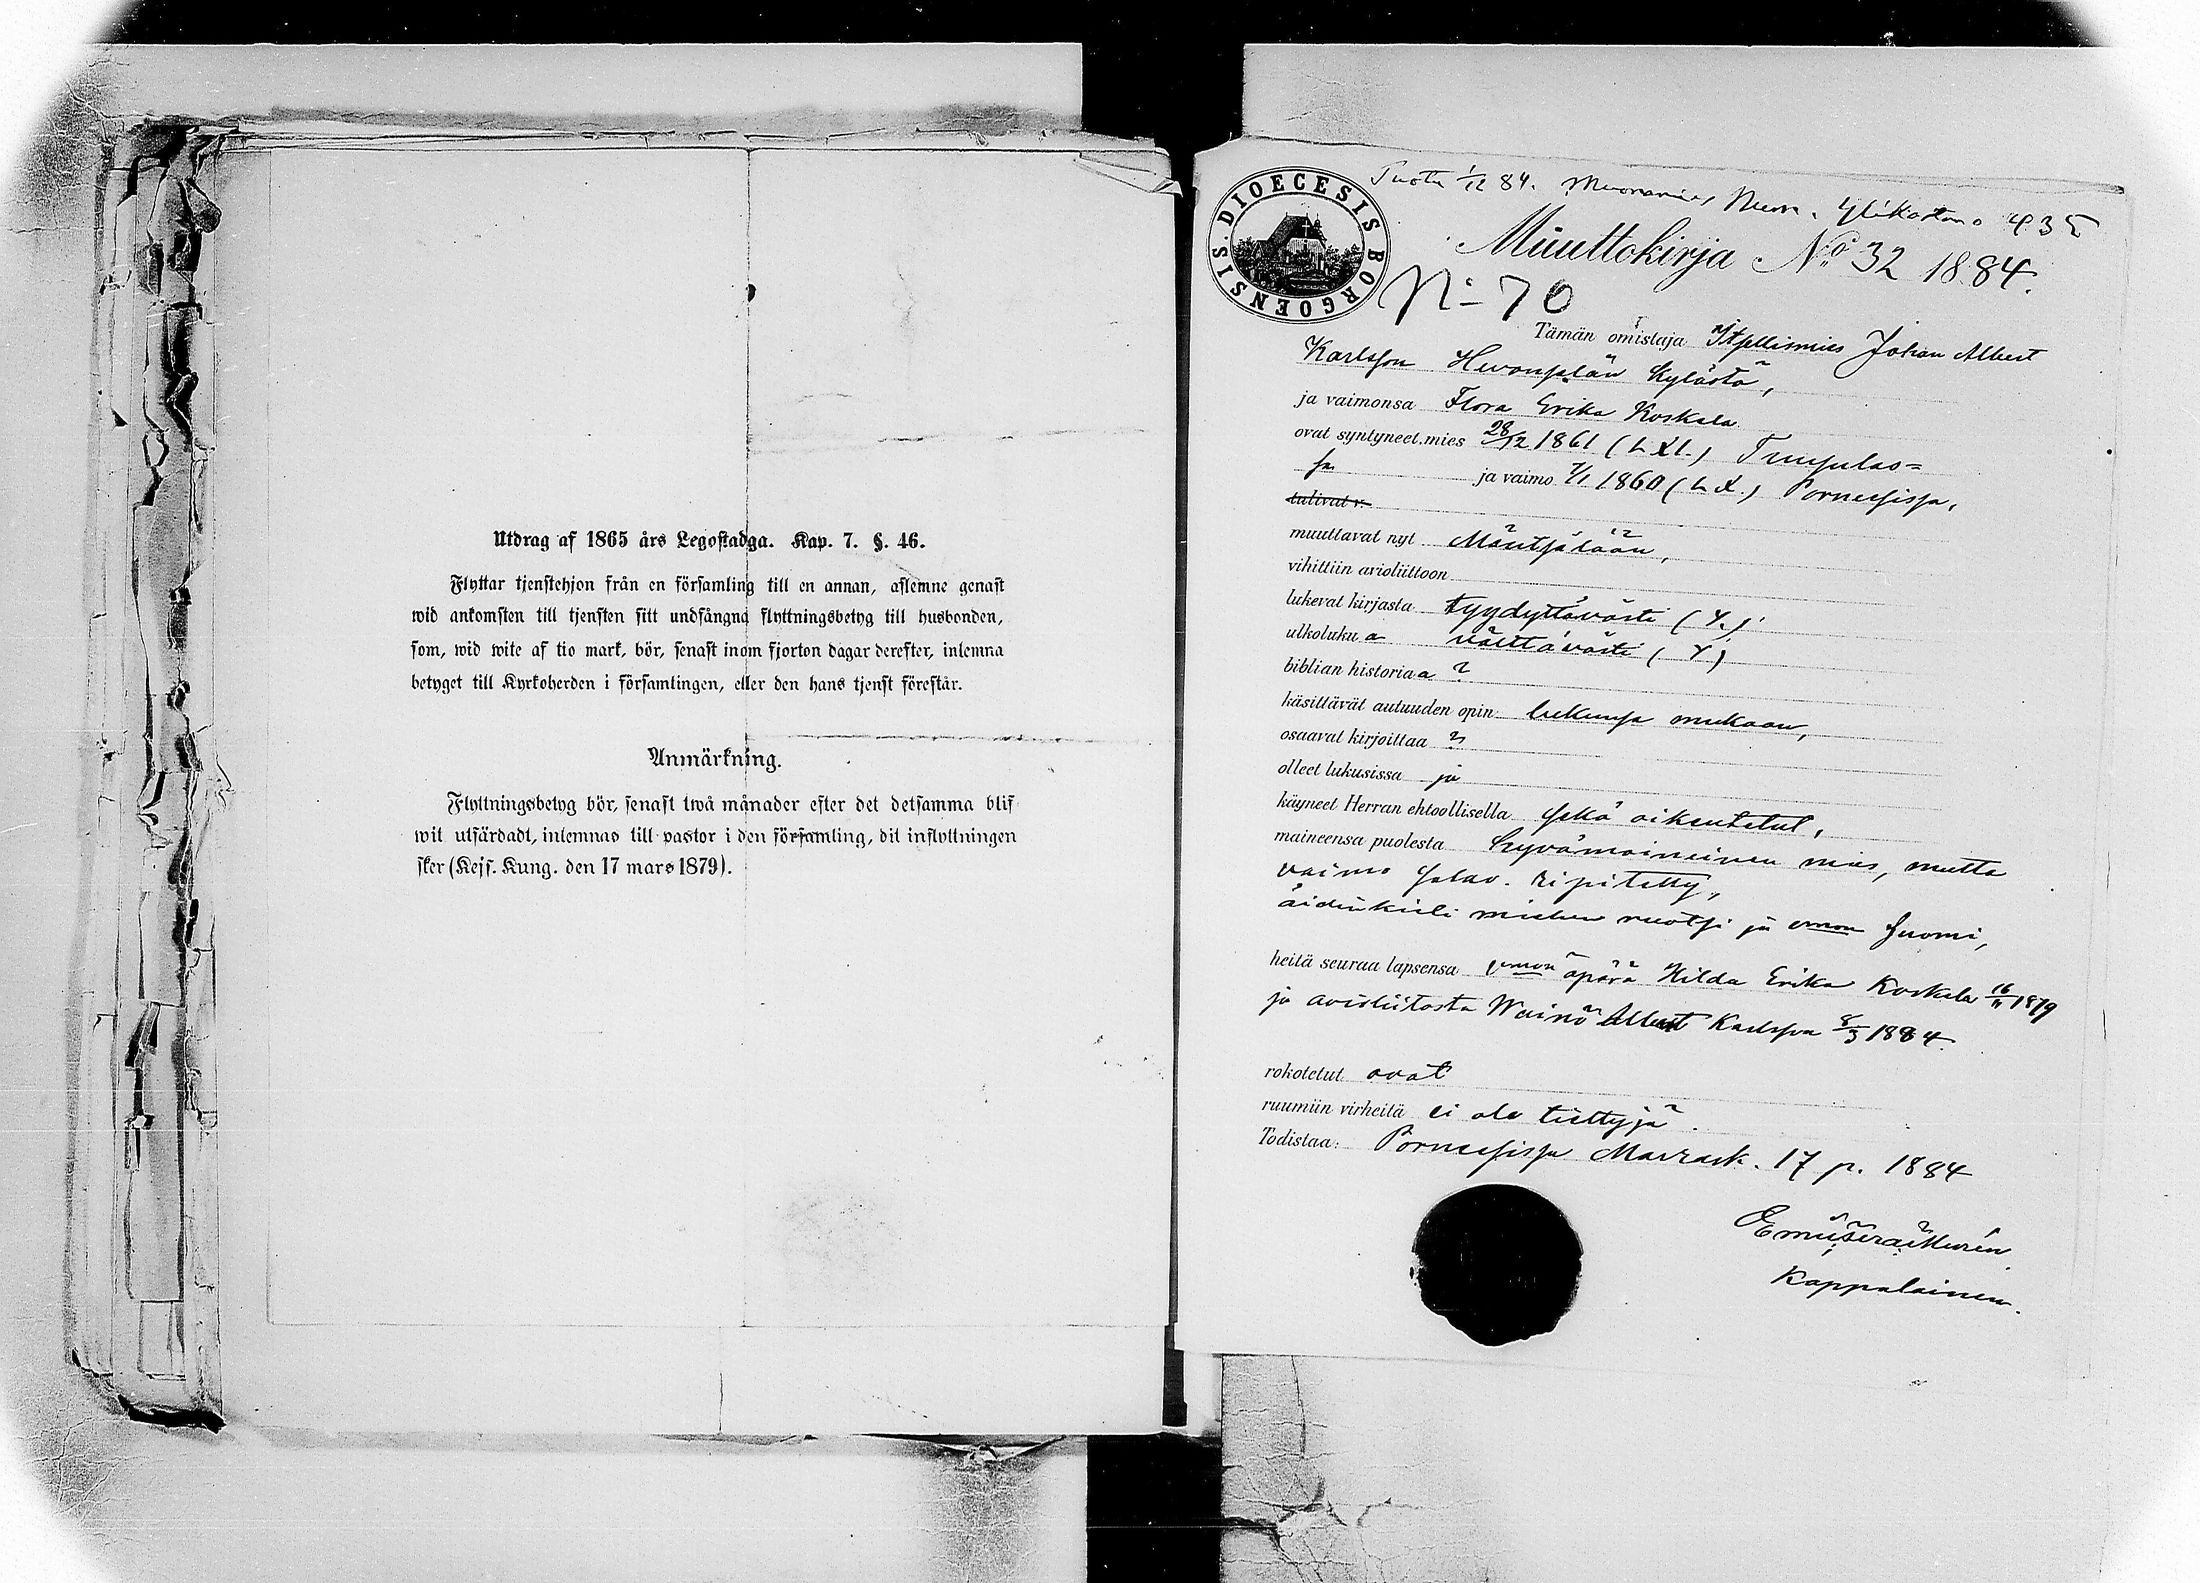 Utdrag af 1865 års Legostadga. Kap. 7. §. 46.
Flyttar tjenstehjon från en församling till en annan, aflemne genast
wid ankomsten till tjensten sitt undfångna flyttningsbetyg till husbonden,
som, wid wite af tio mark, bör, senast inom fjorton dagar derefter, inlemna
betyget till Kyrkoherden i församlingen, eller den hans tjenst förestår.
Anmärkning.
Flyttningsbetyg bör, senast twå månader efter det detsamma blif
wit utfärdadt, inlemnas till pastor i den församling, dit inflyttningen
sker (Kejs. Kung. den 17 mars 1879).
DIOECESIS BORGOENSIS.
Tuotu 1/12 84. Muonamies 435
Muuttokirja No 32 1884.
No 70
Tämän omistaja Itsellismies Johan Albert
Karlsson kylästä,
ja vaimonsa Flora Erika Koskela
ovat syntyneet mies 28/12 1861 Tuusulas=
sa ja vaimo 7/1 1860 Pornessissa,
tulivat v.
muuttavat nyt Mäntsälään,
vihittiin avioliittoon
lukevat kirjasta tyydyttävästi
ulkoluku a välttävästi
biblian historiaa ?
käsittävät autuuden opin lukunsa mukaan,
osaavat kirjoittaa ?
olleet lukusissa ja
käyneet Herran ehtoollisella sekä oikeutetut,
maineensa puolesta hyvämaineinen mies, mutta
vaimo salav. ripitetty,
äidinkieli miehen ruotsi ja emon suomi,
heitä seuraa lapsensa emon äpärä Hilda Erika Koskela 16/11 1879
ja avioliitosta Wäinö Albert Karlsson 8/3 1884.
rokotetut ovat
ruumiin virheitä ei ole tiettyjä.
Todistaa: Pornessissa Marrask. 17 p. 1884
Kappalainen.